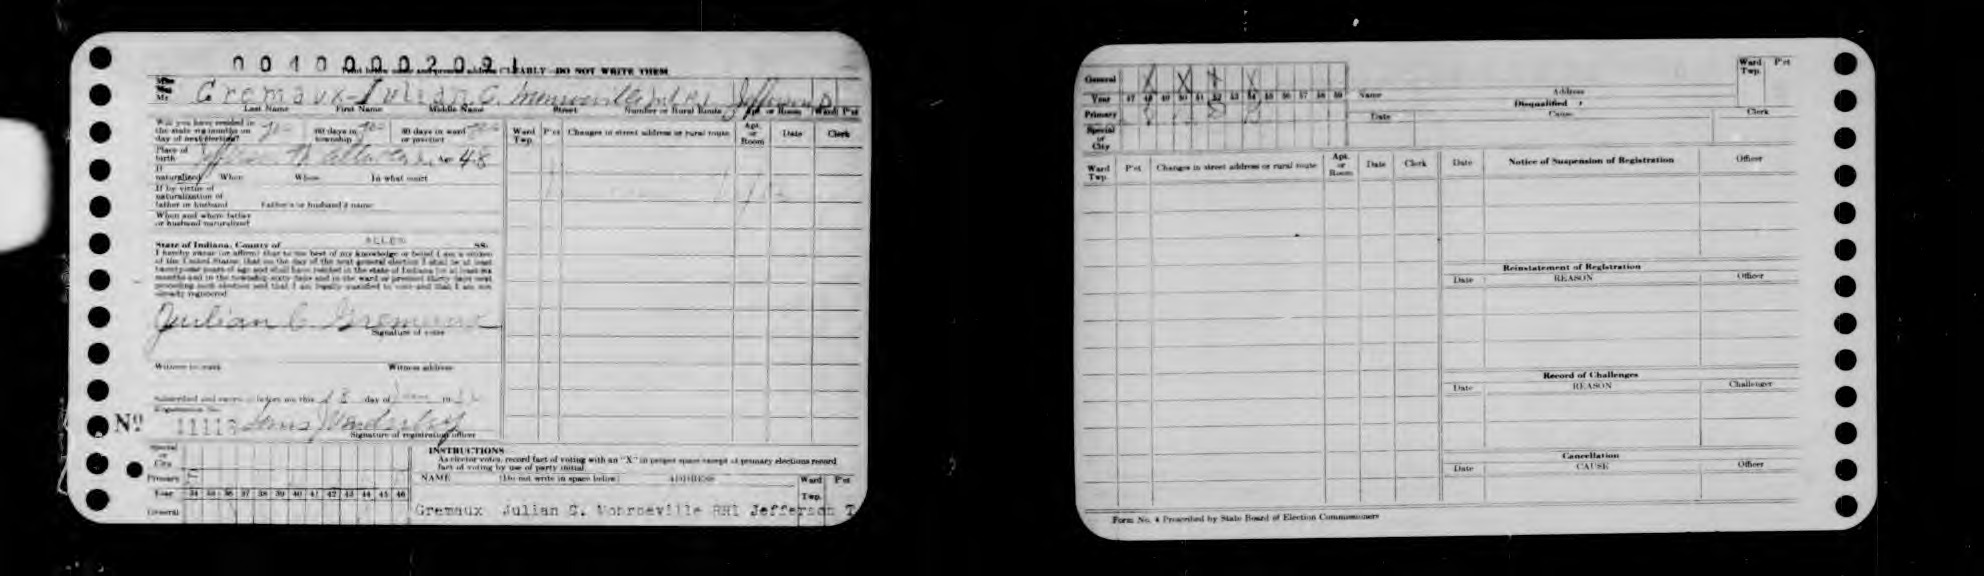 00400002021
Print below name and present address CLEARLY - DO NOT WRITE THEM
Miss
Mrs.
Mr. Gremaux - Julian C. Monroeville Ind R1 Jefferson
Last Name First Name Middle Name Street Number or Rural Route Apt. or Room Ward P'ct
Will you have resided in
the state six months on
day of next election? yes 60 days in
township yes 30 days in ward
or precinct yes
Ward
Twp. P'ct Changes in street address or rural route Apt.
or
Room Date Clerk
Place of
birth Jefferson Allen 48
If
naturalized When Where In what court
If by virtue of
naturalization of
father or husband Father's or husband's name
When and where father
or husband naturalized
State of Indiana, County of ALLEN SS.
I hereby swear (or affirm) that to the best of my knowledge or belief I am a citizen
of the United States; that on the day of the next general election I shall be at least
twenty-one years of age and shall have resided in the state of Indiana for at least six
months and in the township sixty days and in the ward or precinct thirty days next
preceding such election and that I am legally qualified to vote and that I am not
already registered
Julian C. Gremaux
Signature of voter
Witness to mark Witness address
Subscribed and sworn to before me this day of
Registration No.
No. 11113
Signature of registration officer
Special
or
City
Primary
Year 34 35 36 37 38 39 40 41 42 43 44 45 46
General
INSTRUCTIONS
As elector votes, record fact of voting with an "X" in proper space except at primary elections record
fact of voting by use of party initial.
NAME (Do not write in space below) ADDRESS Ward
Twp. P'ct
Gremaux Julian C. Monroeville RR1 Jefferson T
General X X X X
Year 47 48 49 50 51 52 53 54 55 56 57 58 59
Primary
Special
or
City
Name Address Ward
Twp. P'ct
Disqualified
Date Cause Clerk
Ward
Twp. P'ct Changes in street address or rural route Apt.
or
Room Date Clerk
Date Notice of Suspension of Registration Officer
Reinstatement of Registration
Date REASON Officer
Record of Challenges
Date REASON Challenger
Cancellation
Date CAUSE Officer
Form No. 4 Prescribed by State Board of Election Commissioners